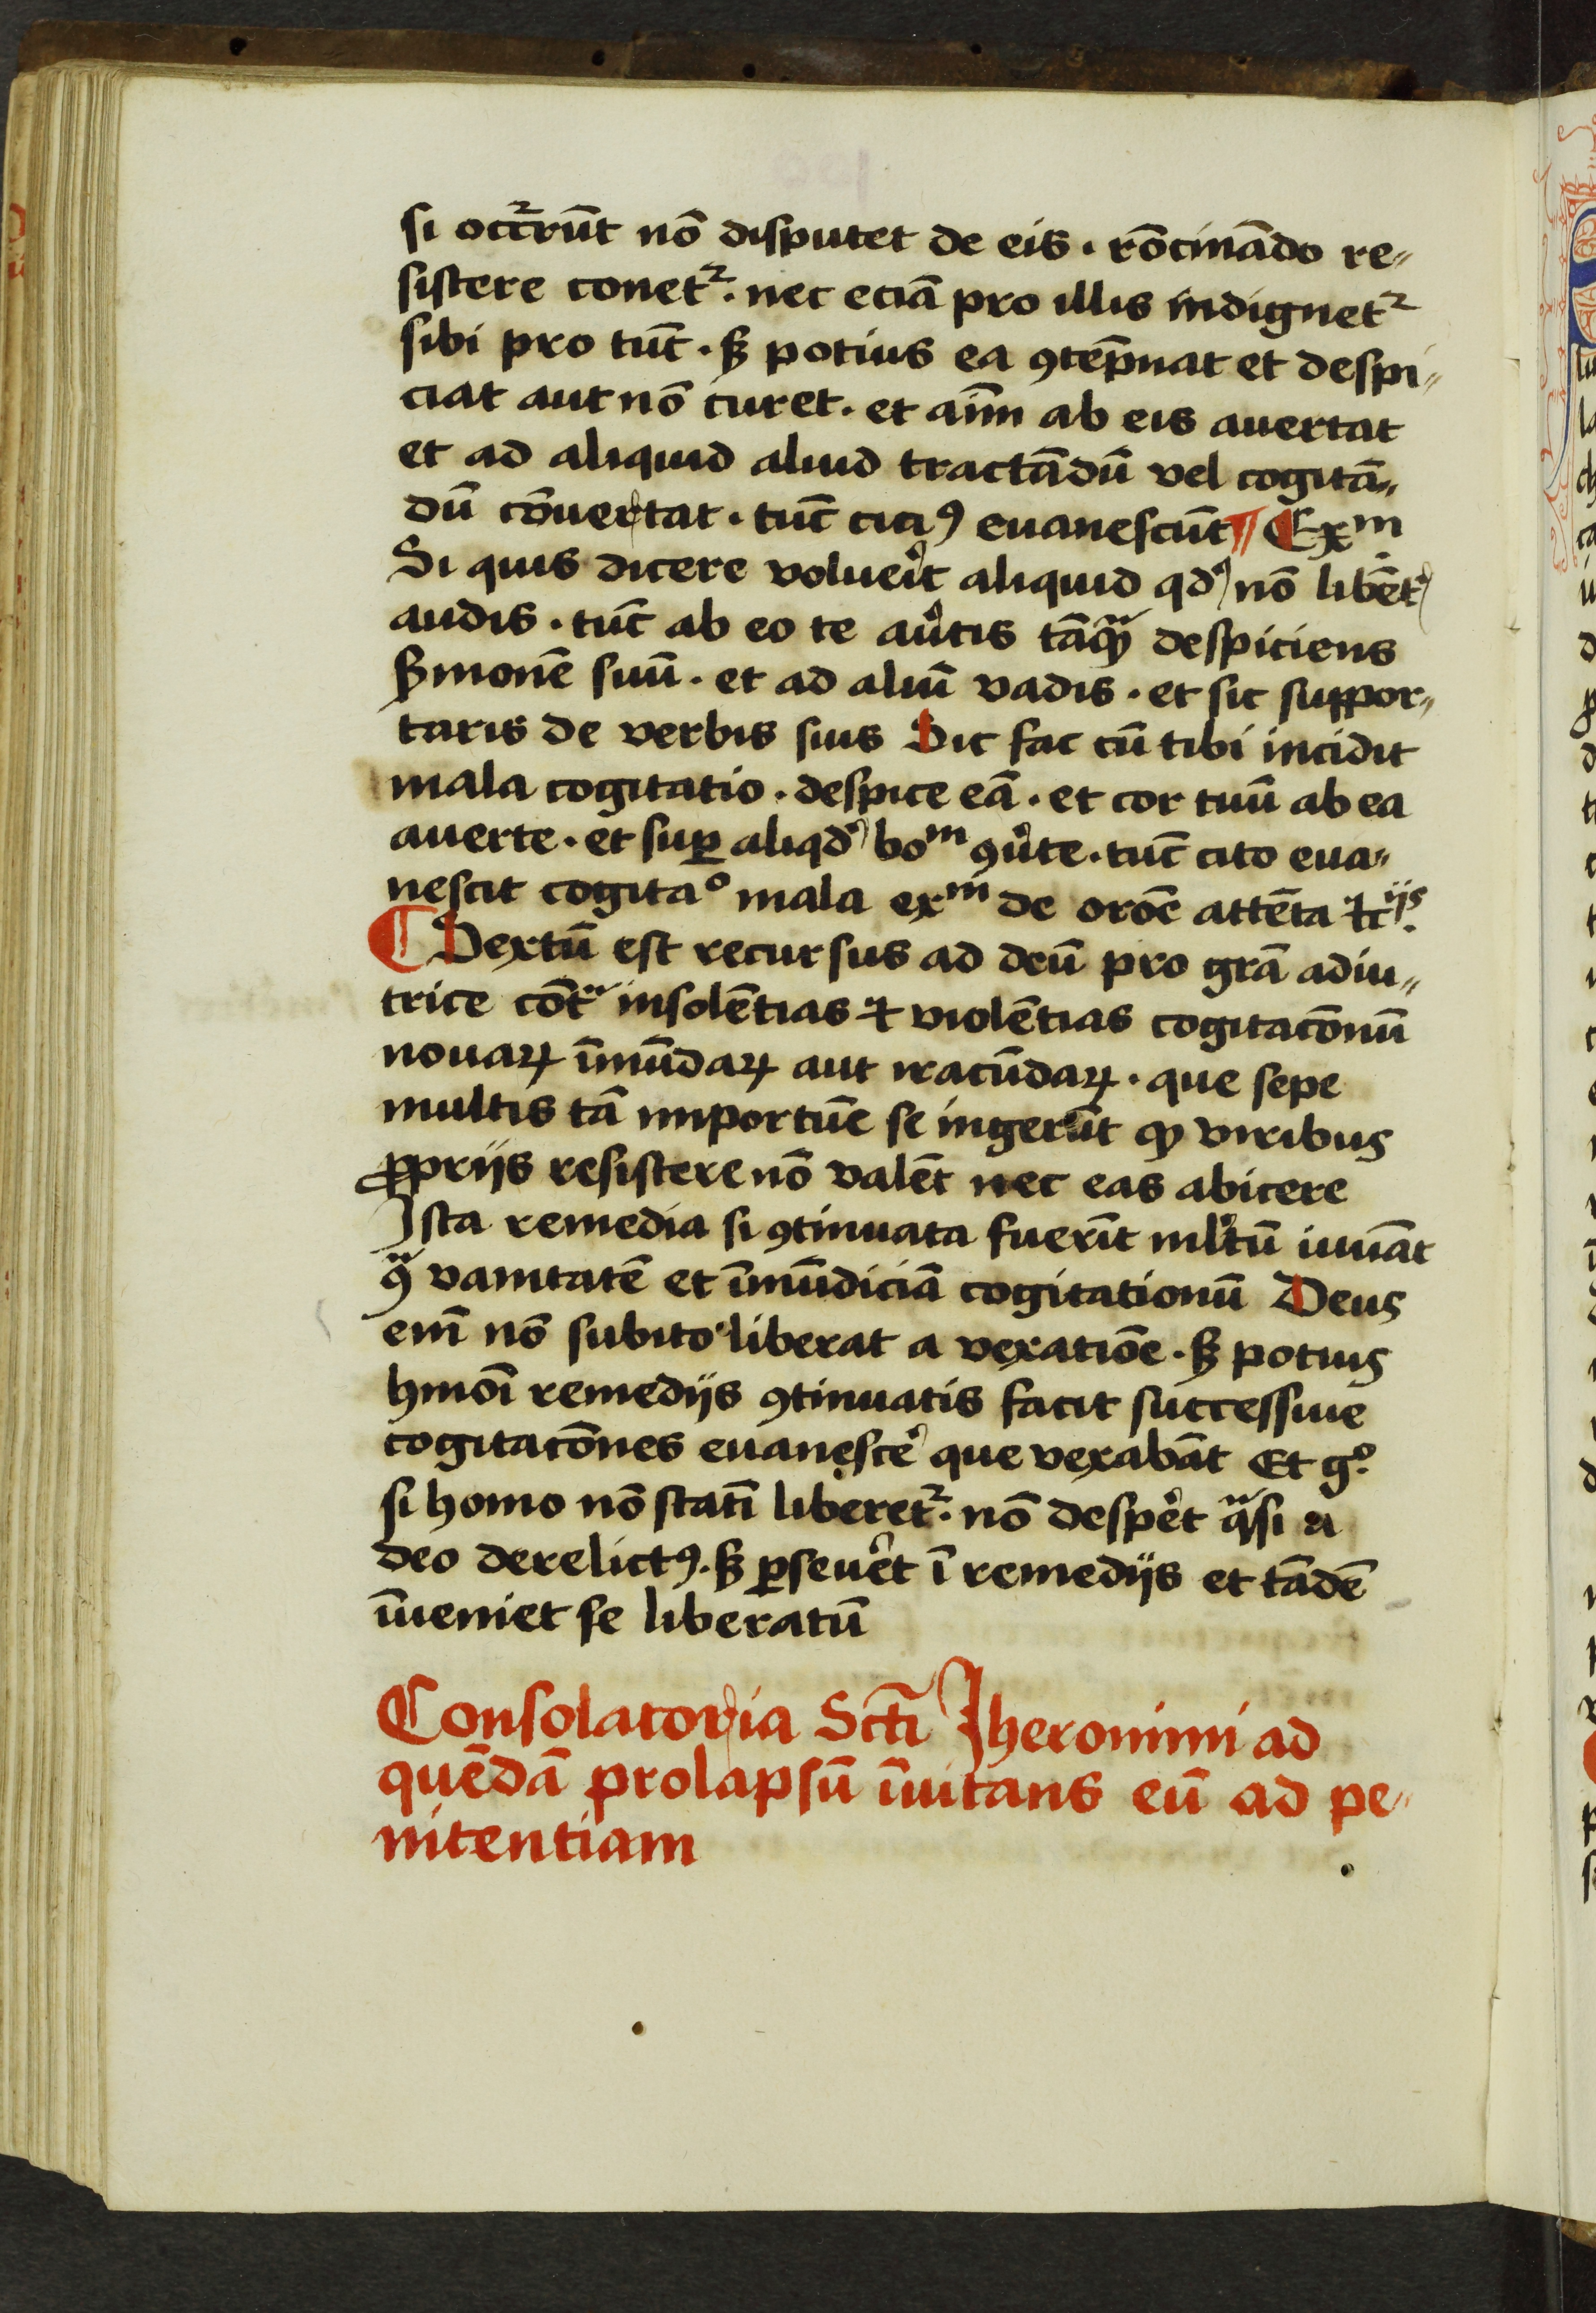 si occ̄rrūt nō disputet de eis . rōcinādo re„
sistere conetᷣ . nec eciā pro illis indignetᷣ
sibi pro tūc . sꝫ potius ea ꝯtēpnat et despi„
ciat aut nō curet . et aīm ab eis auertat
et ad aliquid aliud tractādū vel cogitā„
dū cōuertat . tūc citiꝰ euanescūt ¶ Exᵐ
Si quis dicere voluerit aliquid qd̓ nō libēt̓
audis . tūc ab eo te au̓tis tāqᷓꝫ despiciens
sermonē suū . et ad aliū vadis . et sic suppor„
taris de verbis suis Sic fac cū tibi incidit
mala cogitatio . despice eā . et cor tuū ab ea
auerte . et suꝑ aliqd̓ boᵐ ꝯu̓te . tūc cito eua„
nescit cogitaº mala exᵐ de orōe attēta
¶ Sextū est recursus ad deū pro grā adiu„
trice cōtᷓ insolētias ⁊ violētias cogitacōnū
nouaꝝ īmūdaꝝ aut iracūdaꝝ . que sepe
multis tā importūe se ingerūt qꝫ viribus
ꝓprijs resistere nō valēt nec eas abicere
Ista remedia si ꝯtinuata fuerīt ml̓tū iuuāt
ꝯᷓ vanitatē et īmūdiciā cogitationū Deus
enī nō subito liberat a vexatiōe . sꝫ potius
hmōi remedijs ꝯtinuatis facit successiue
cogitacōnes euanesce̓ que vexabāt Et gº .
si homo nō statī liberetᷣ . nō despe̓t qᷓsi a
deo derelictꝰ . sꝫ ꝑseue̓t ī remedijs et tādē
īueniet se liberatū
Consolatoria Scti Jheronimi ad
quēdā prolapsū īuitans eū ad pe„
nitentiam